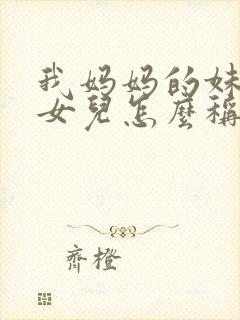 我妈妈的妹
女兒怎麼稱
齊橙